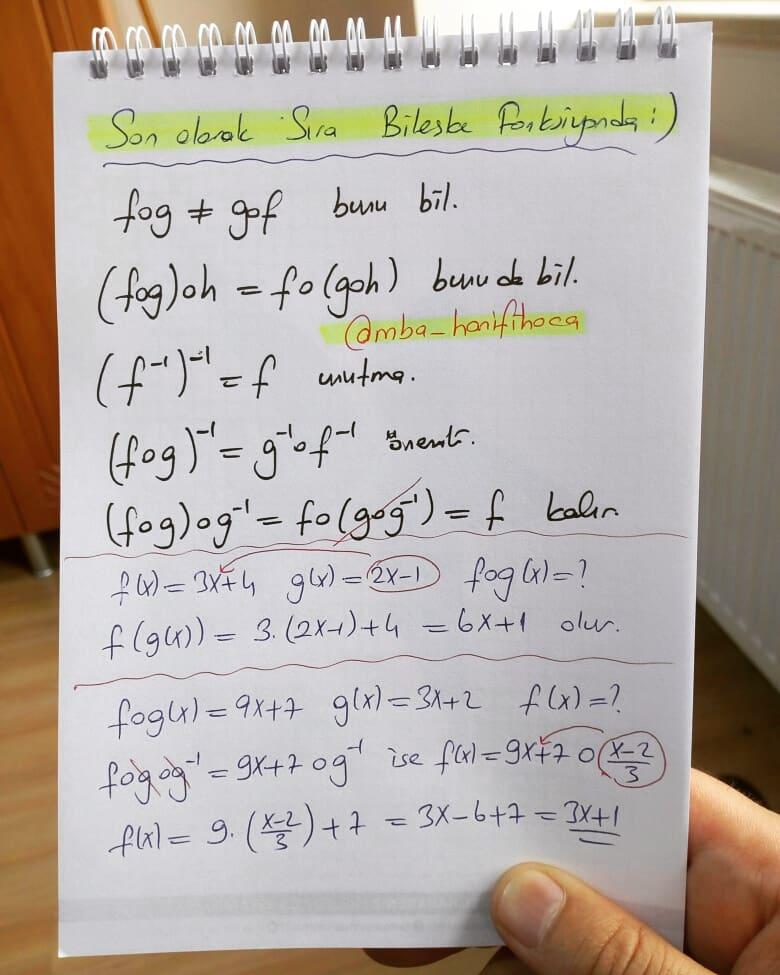 Son olarak Sıra Bileşke Fonksiyonda :)
fog ≠ gof bunu bil.
(fog)oh = fo(goh) bunu da bil.
@mba_hanifihoca
(f⁻¹)⁻¹ = f unutma.
(fog)⁻¹ = g⁻¹of⁻¹ önemli.
(fog)og⁻¹ = fo(gog⁻¹) = f kalır.
f(x) = 3x+4 g(x) = 2x-1 fog(x) = ?
f(g(x)) = 3.(2x-1)+4 = 6x+1 olur.
fog(x) = 9x+7 g(x) = 3x+2 f(x) = ?
fogog⁻¹ = 9x+7og⁻¹ ise f(x) = 9x+7 o x-2/3
f(x) = 9.(x-2/3)+7 = 3x-6+7 = 3x+1